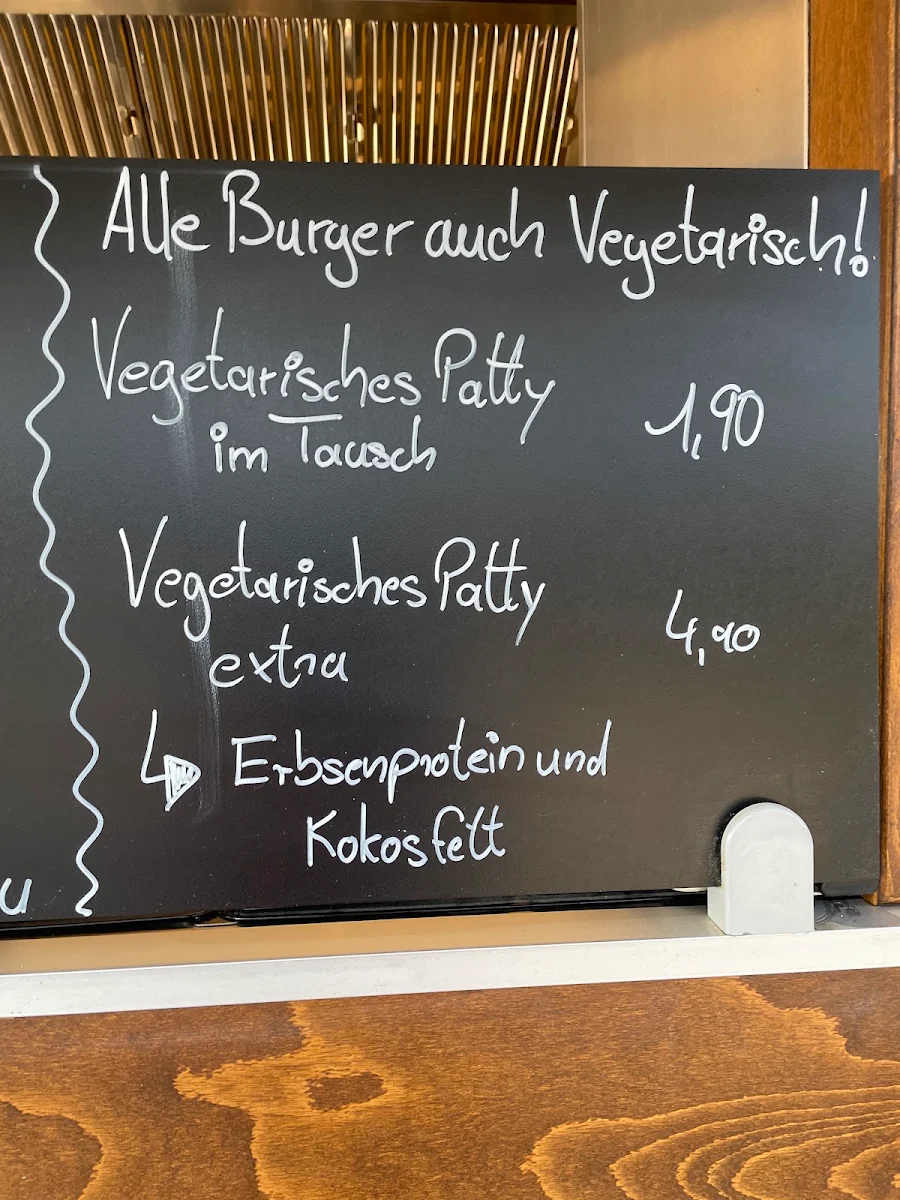 Alle Burger auch Vegetarisch!
Vegetarisches Patty
im Tausch
1,90
Vegetarisches Patty
extra
4,90
↳ Erbsenprotein und
Kokosfett
u